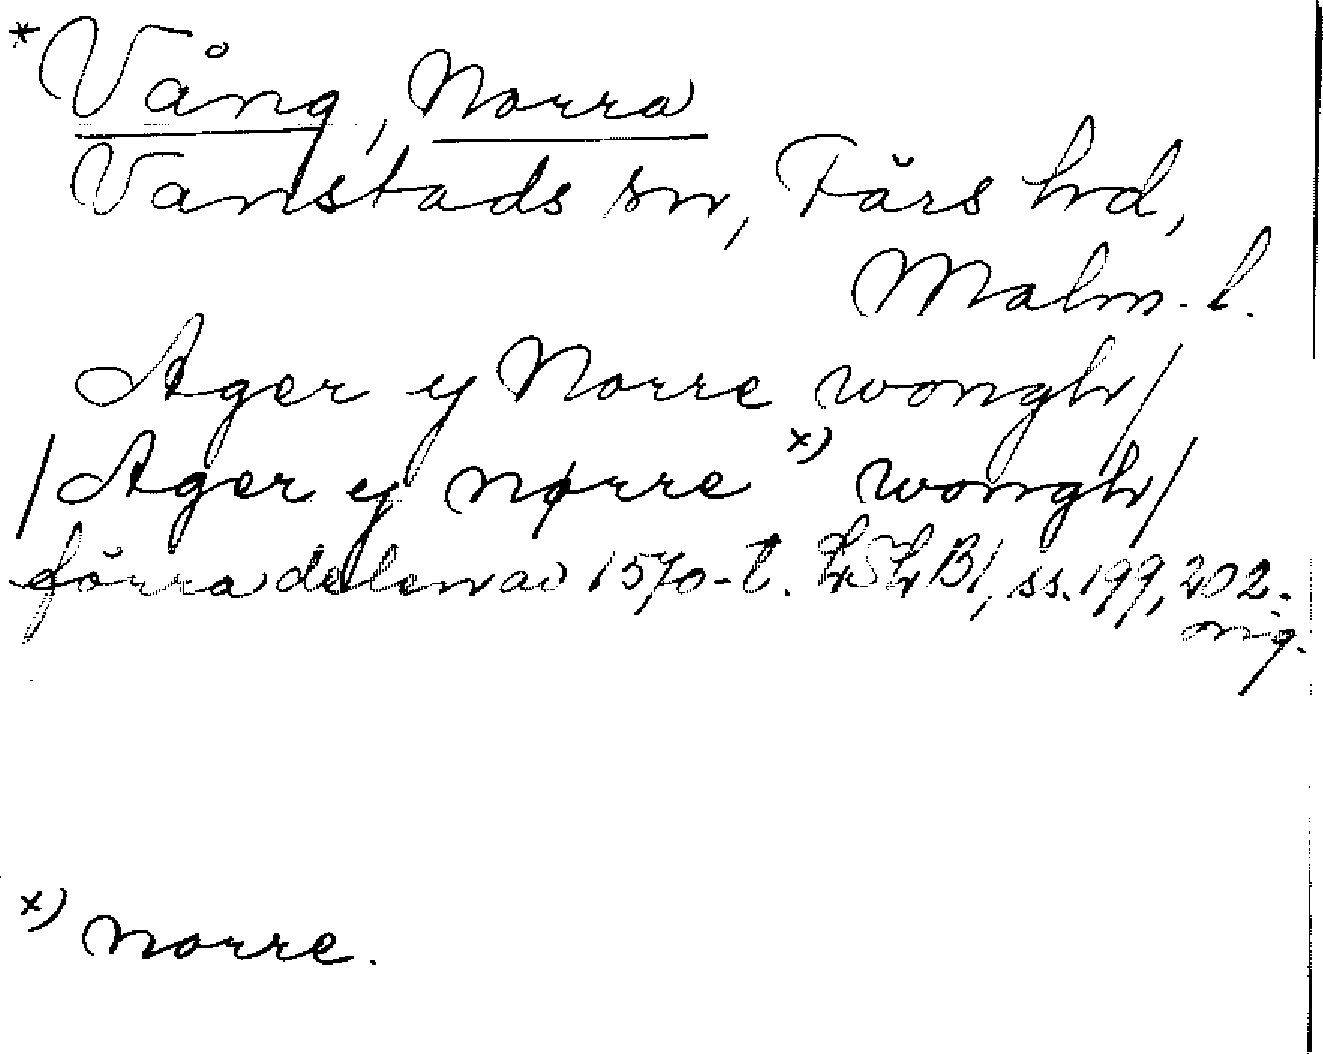 *Vång, Norra
Vanstads sn, Färs hd,
Malm. l.
Ager y Norre wongh/
/Ager y nørre x) wongh/
förra delen av 1570-t. LSLB1, ss. 199, 202.
orig.
x) norre.